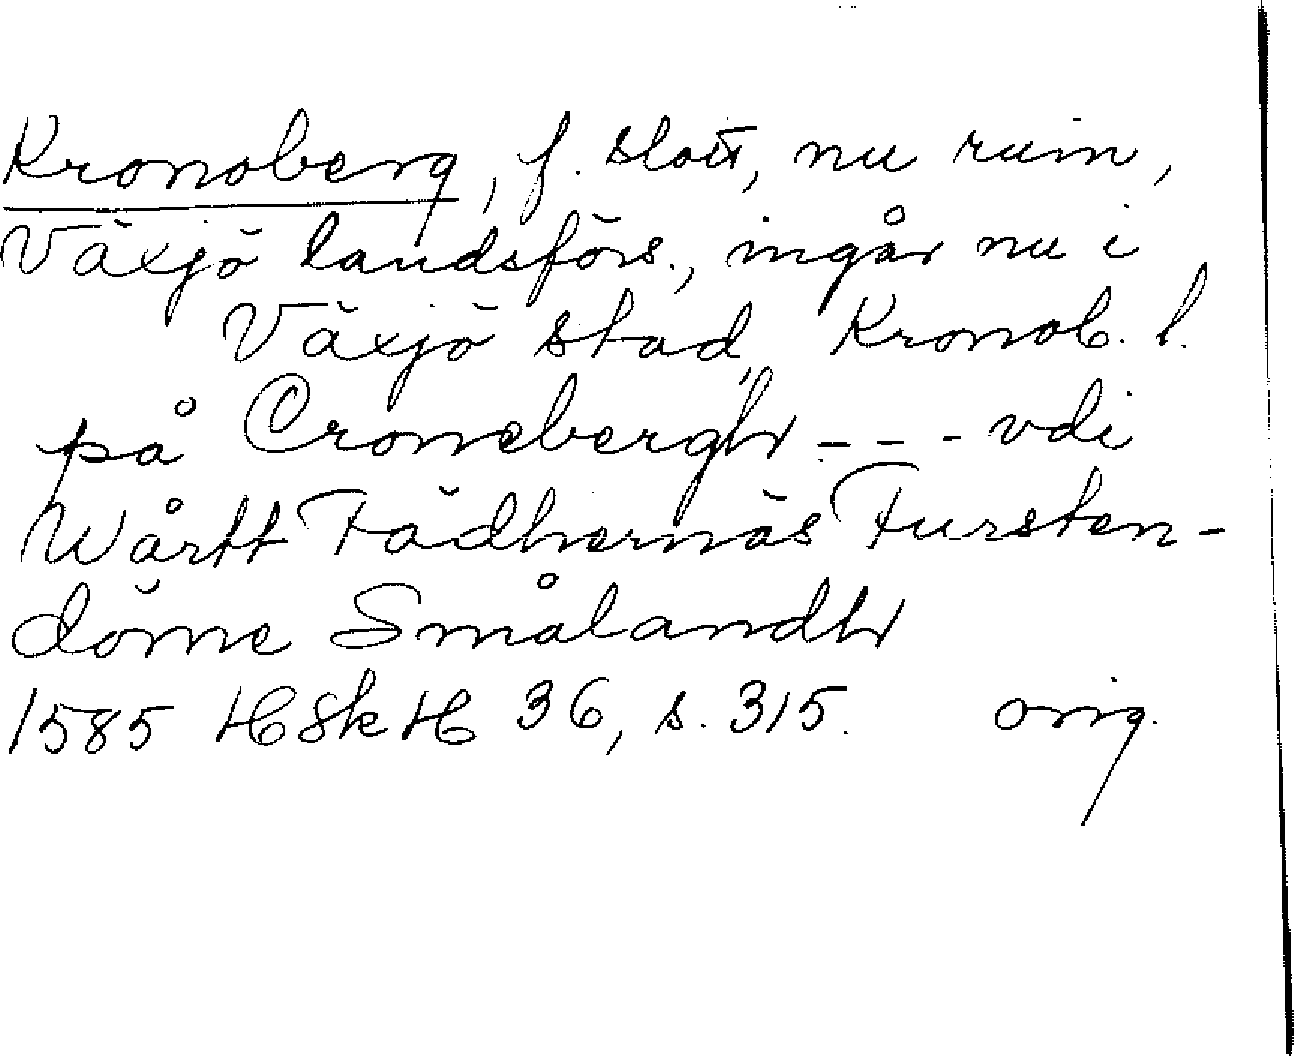 Kronoberg, f. slott, nu ruin,
Växjö landsförs., ingår nu i
Växjö stad, Kronob. l.
på Cronebergh - - - vdi
Wårtt Fädhernäs Fursten-
döme Smålandh
1585 HSkH 36, s. 315. orig.